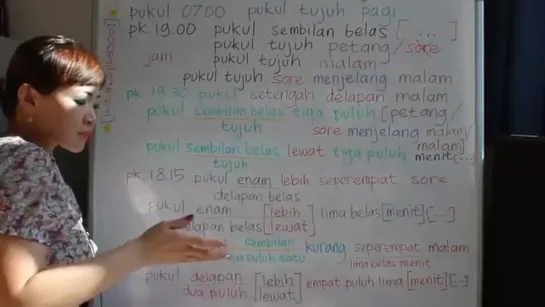 pukul 07.00 pukul tujuh pagi
pk. 19.00 pukul sembilan belas [...]
pukul tujuh petang/sore
jam pukul tujuh malam
pukul tujuh sore menjelang malam
pk. 19.30 pukul setengah delapan malam
pukul sembilan belas tiga puluh [petang/
tujuh sore menjelang malam/
malam]
pukul sembilan belas lewat tiga puluh menit [...]
tujuh
pk. 18.15 pukul enam lebih seperempat sore
delapan belas
pukul enam [lebih lima belas [menit] [...]
delapan belas lewat]
sembilan kurang seperempat malam
dua puluh satu lima belas menit
pukul delapan [lebih empat puluh lima [menit] [...]
dua puluh lewat]